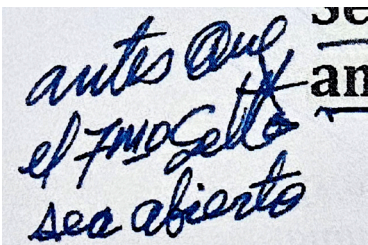 antes que
el 7mo Sello
sea abierto